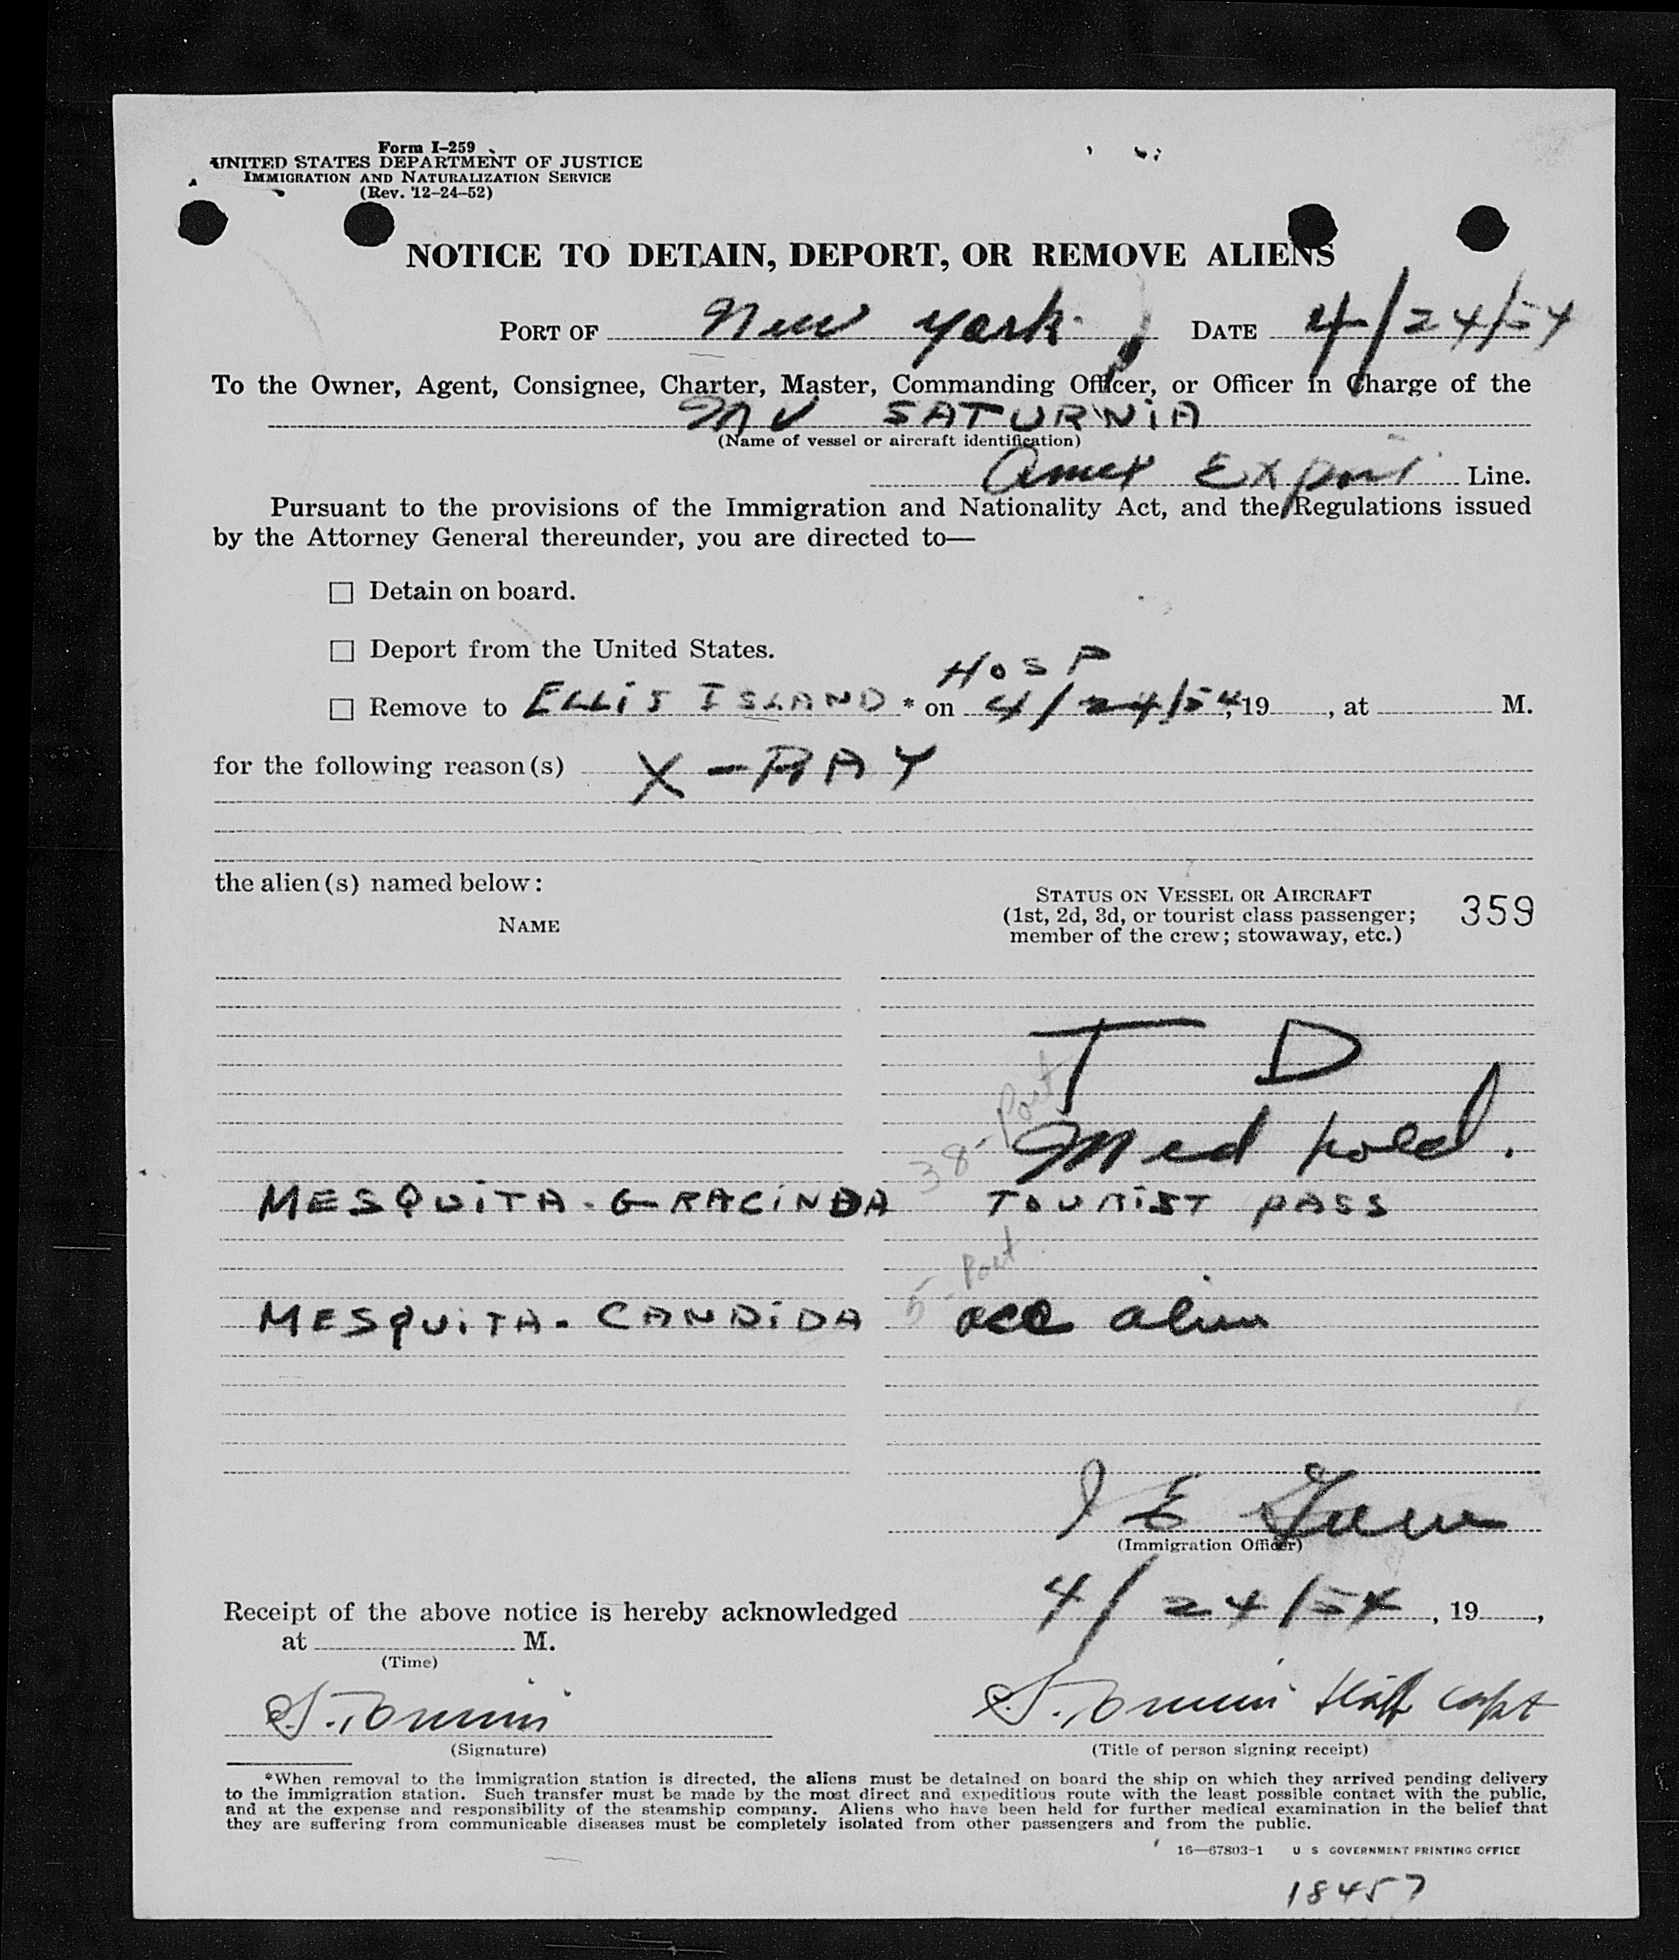 Form I-259
UNITED STATES DEPARTMENT OF JUSTICE
IMMIGRATION AND NATURALIZATION SERVICE
(Rev. 12-24-52)
NOTICE TO DETAIN, DEPORT, OR REMOVE ALIENS
PORT OF New York DATE 4/24/54
To the Owner, Agent, Consignee, Charter, Master, Commanding Officer, or Officer in Charge of the
MV SATURNIA
(Name of vessel or aircraft identification)
Amer Export Line.
Pursuant to the provisions of the Immigration and Nationality Act, and the Regulations issued
by the Attorney General thereunder, you are directed to—
☐ Detain on board.
☐ Deport from the United States.
HOSP
☐ Remove to ELLIS ISLAND * on 4/24/54, 19 , at M.
for the following reason(s) X-RAY
the alien(s) named below:
NAME
STATUS ON VESSEL OR AIRCRAFT
(1st, 2d, 3d, or tourist class passenger;
member of the crew; stowaway, etc.)
359
T D
38-Port
Med hold.
MESQUITA. GRACINDA TOURIST PASS
5-Port
MESQUITA. CANDIDA acc alien
I E
(Immigration Officer)
Receipt of the above notice is hereby acknowledged 4/24/54, 19 ,
at M.
(Time)
S. Tomini S. Tomini Staff Capt
(Signature) (Title of person signing receipt)
*When removal to the immigration station is directed, the aliens must be detained on board the ship on which they arrived pending delivery
to the immigration station. Such transfer must be made by the most direct and expeditious route with the least possible contact with the public,
and at the expense and responsibility of the steamship company. Aliens who have been held for further medical examination in the belief that
they are suffering from communicable diseases must be completely isolated from other passengers and from the public.
16—67803-1 U S GOVERNMENT PRINTING OFFICE
18457